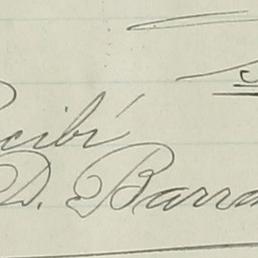 Recibí
D. Barra